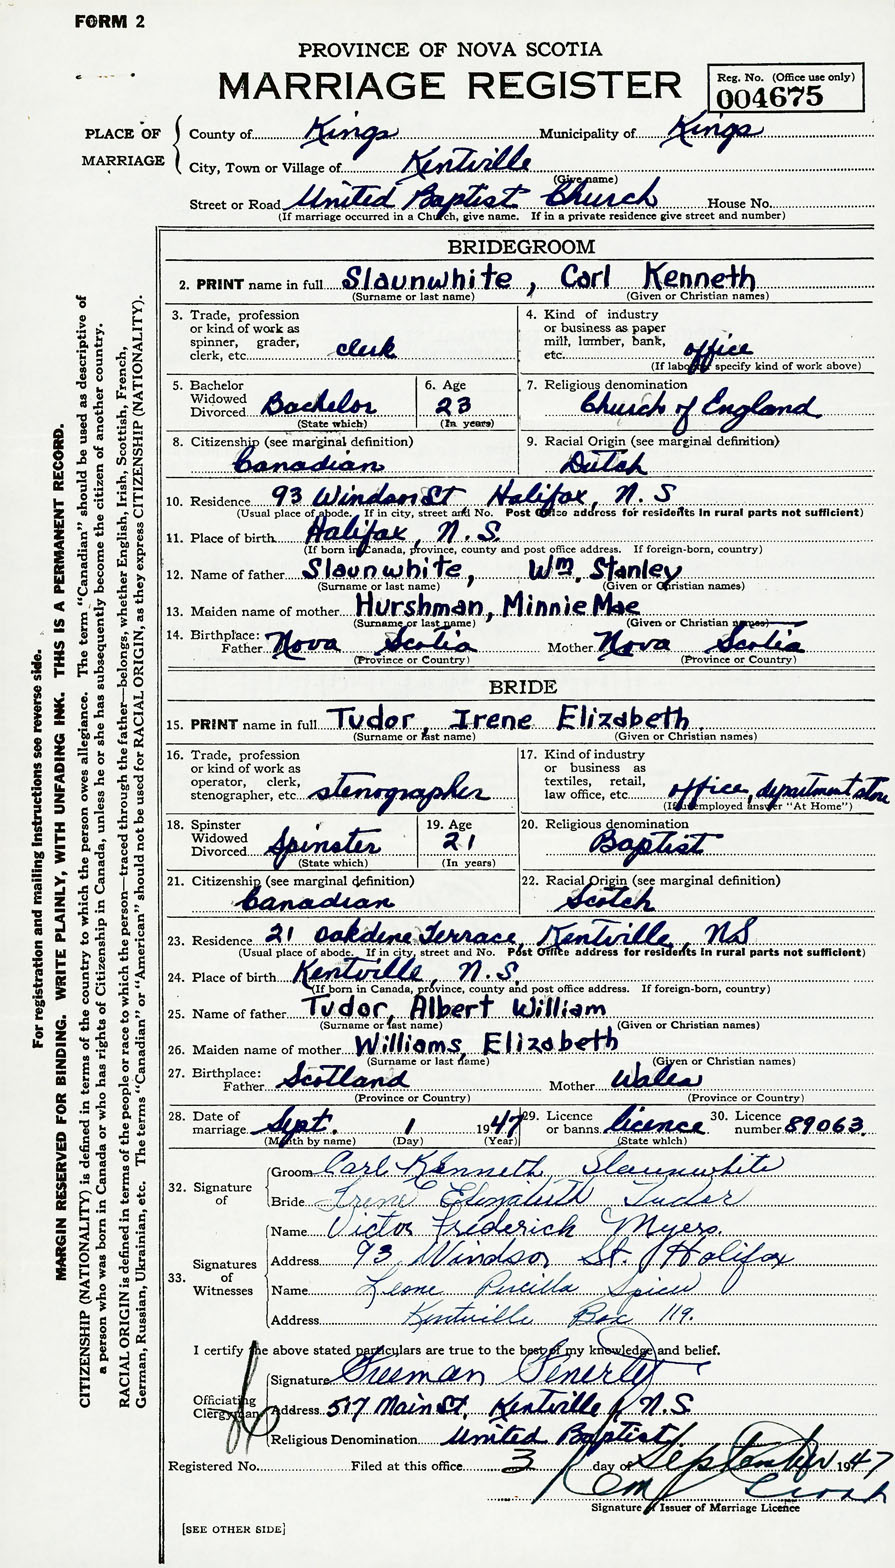 FORM 2
PROVINCE OF NOVA SCOTIA
MARRIAGE REGISTER
Reg. No. (Office use only)
004675
PLACE OF MARRIAGE
County of Kings Municipality of Kings
City, Town or Village of Kentville
(Give name)
Street or Road United Baptist Church House No.
(If marriage occurred in a Church, give name. If in a private residence give street and number)
BRIDEGROOM
2. PRINT name in full Slaunwhite, Carl Kenneth
(Surname or last name) (Given or Christian names)
3. Trade, profession or kind of work as spinner, grader, clerk, etc. clerk
4. Kind of industry or business as paper mill, lumber, bank, etc. office
(If labourer specify kind of work above)
5. Bachelor Widowed Divorced Bachelor
(State which)
6. Age 23
(In years)
7. Religious denomination Church of England
8. Citizenship (see marginal definition) Canadian
9. Racial Origin (see marginal definition) Dutch
10. Residence 93 Windsor St Halifax, N.S
(Usual place of abode. If in city, street and No. Post Office address for residents in rural parts not sufficient)
11. Place of birth Halifax, N.S.
(If born in Canada, province, county and post office address. If foreign-born, country)
12. Name of father Slaunwhite, Wm. Stanley
(Surname or last name) (Given or Christian names)
13. Maiden name of mother Hurshman, Minnie Mae
(Surname or last name) (Given or Christian names)
14. Birthplace: Father Nova Scotia Mother Nova Scotia
(Province or Country) (Province or Country)
BRIDE
15. PRINT name in full Tudor, Irene Elizabeth
(Surname or last name) (Given or Christian names)
16. Trade, profession or kind of work as operator, clerk, stenographer, etc. stenographer
17. Kind of industry or business as textiles, retail, law office, etc. office, department store
(If unemployed answer "At Home")
18. Spinster Widowed Divorced Spinster
(State which)
19. Age 21
(In years)
20. Religious denomination Baptist
21. Citizenship (see marginal definition) Canadian
22. Racial Origin (see marginal definition) Scotch
23. Residence 21 Oakdene Terrace, Kentville, NS
(Usual place of abode. If in city, street and No. Post Office address for residents in rural parts not sufficient)
24. Place of birth Kentville, N.S.
(If born in Canada, province, county and post office address. If foreign-born, country)
25. Name of father Tudor, Albert William
(Surname or last name) (Given or Christian names)
26. Maiden name of mother Williams, Elizabeth
(Surname or last name) (Given or Christian names)
27. Birthplace: Father Scotland Mother Wales
(Province or Country) (Province or Country)
28. Date of marriage Sept. 1 1947
(Month by name) (Day) (Year)
29. Licence or banns licence
(State which)
30. Licence number 89063.
32. Signature of
Groom Carl Kenneth Slaunwhite
Bride Irene Elizabeth Tudor
33. Signatures of Witnesses
Name Victor Frederick Myers.
Address 93 Windsor St. Halifax
Name Leone
Address Kentville Box 119.
I certify the above stated particulars are true to the best of my knowledge and belief.
Officiating Clergyman
Signature Freeman
Address 517 Main St. Kentville, N.S
Religious Denomination United Baptist
Registered No. Filed at this office 3 day of September 1947
Signature of Issuer of Marriage Licence
[SEE OTHER SIDE]
For registration and mailing instructions see reverse side.
MARGIN RESERVED FOR BINDING. WRITE PLAINLY, WITH UNFADING INK. THIS IS A PERMANENT RECORD.
CITIZENSHIP (NATIONALITY) is defined in terms of the country to which the person owes allegiance. The term "Canadian" should be used as descriptive of
a person who was born in Canada or who has rights of Citizenship in Canada, unless he or she has subsequently become the citizen of another country.
RACIAL ORIGIN is defined in terms of the people or race to which the person—traced through the father—belongs, whether English, Irish, Scottish, French,
German, Russian, Ukrainian, etc. The terms "Canadian" or "American" should not be used for RACIAL ORIGIN, as they express CITIZENSHIP (NATIONALITY).